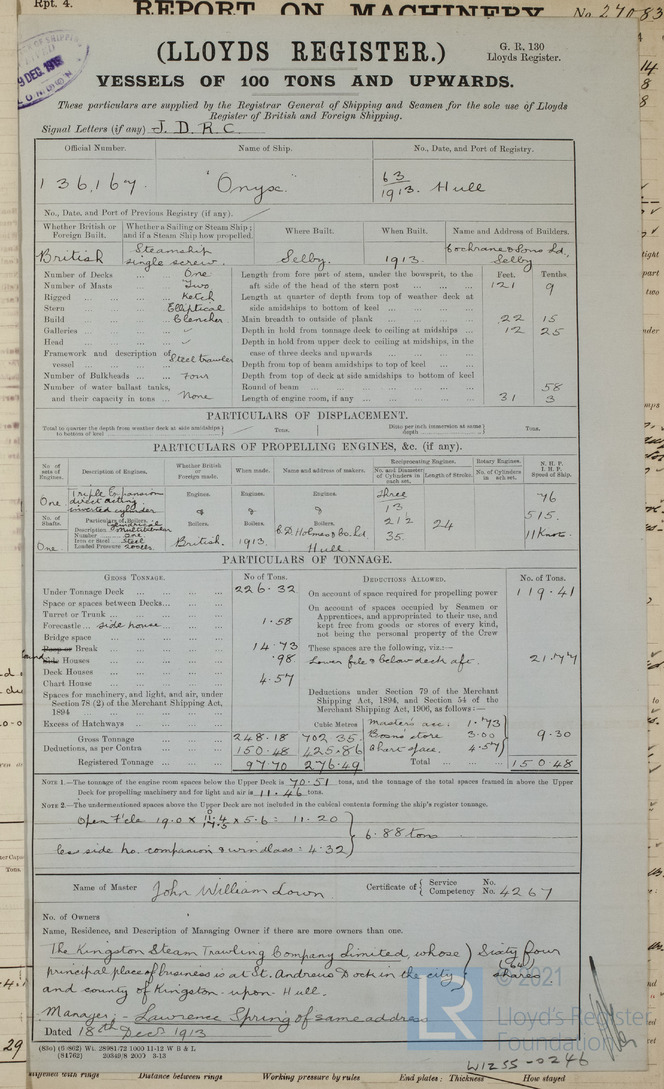 Rpt. 4.
REPORT ON MACHINERY
No. 27083
9 DEC. 1913
(LLOYDS REGISTER.)
G. R. 130
Lloyds Register.
VESSELS OF 100 TONS AND UPWARDS.
These particulars are supplied by the Registrar General of Shipping and Seamen for the sole use of Lloyds
Register of British and Foreign Shipping.
Signal Letters (if any) J. D. R. C.
Official Number. Name of Ship. No., Date, and Port of Registry.
136,167. "Onyx" 63/1913. Hull
No., Date, and Port of Previous Registry (if any).
Whether British or Foreign Built. Whether a Sailing or Steam Ship; and if a Steam Ship how propelled. Where Built. When Built. Name and Address of Builders.
British Steamship single screw. Selby. 1913. Cochrane & Sons Ld, Selby
Number of Decks ... One
Number of Masts ... Two
Rigged ... Ketch
Stern ... Elliptical
Build ... Clencher
Galleries ...
Head ...
Framework and description of vessel ... Steel trawler
Number of Bulkheads ... Four
Number of water ballast tanks, and their capacity in tons ... None
Feet. Tenths.
Length from fore part of stem, under the bowsprit, to the aft side of the head of the stern post ... 121 9
Length at quarter of depth from top of weather deck at side amidships to bottom of keel ...
Main breadth to outside of plank ... 22 15
Depth in hold from tonnage deck to ceiling at midships ... 12 25
Depth in hold from upper deck to ceiling at midships, in the case of three decks and upwards ...
Depth from top of beam amidships to top of keel ...
Depth from top of deck at side amidships to bottom of keel
Round of beam ... 58
Length of engine room, if any ... 31 3
PARTICULARS OF DISPLACEMENT.
Total to quarter the depth from weather deck at side amidships to bottom of keel Tons. Ditto per inch immersion at same depth Tons.
PARTICULARS OF PROPELLING ENGINES, &c. (if any).
No. of sets of Engines. Description of Engines. Whether British or Foreign made. When made. Name and address of makers. Reciprocating Engines. Rotary Engines. N. H. P. I. H. P. Speed of Ship.
No. and Diameter of Cylinders in each set. Length of Stroke. No. of Cylinders in each set.
One Triple Expansion direct acting inverted cylinder Engines. & Engines. & Engines. & Three 13 21½ 35. 24 76 515. 11 Knots
No. of Shafts. Particulars of Boilers. Boilers. Boilers. Boilers.
Description Cylindrical Multitubular
Number One
Iron or Steel Steel
Loaded Pressure 200lbs
One British. 1913. C. D. Holmes & Co. Ld. Hull
PARTICULARS OF TONNAGE.
GROSS TONNAGE. No of Tons. DEDUCTIONS ALLOWED. No. of Tons.
Under Tonnage Deck ... 226.32
Space or spaces between Decks ...
Turret or Trunk ...
Forecastle ... side house ... 1.58
Bridge space
Poop or Break ... 14.73
Side Houses ... .98
Deck Houses ...
Chart House ... 4.57
Spaces for machinery, and light, and air, under Section 78 (2) of the Merchant Shipping Act, 1894 ...
Excess of Hatchways ...
Cubic Metres
Gross Tonnage ... 248.18 702.35.
Deductions, as per Contra ... 150.48 425.86
Registered Tonnage ... 97.70 276.49
On account of space required for propelling power 119.41
On account of spaces occupied by Seamen or Apprentices, and appropriated to their use, and kept free from goods or stores of every kind, not being the personal property of the Crew
These spaces are the following, viz.:—
Lower f'cle & below deck aft. 21.77
Deductions under Section 79 of the Merchant Shipping Act, 1894, and Section 54 of the Merchant Shipping Act, 1906, as follows:—
Master's acc: 1.73
Bosns store 3.00 9.30
Chart space. 4.57
Total ... 150.48
NOTE 1.—The tonnage of the engine room spaces below the Upper Deck is 70.51 tons, and the tonnage of the total spaces framed in above the Upper
Deck for propelling machinery and for light and air is 11.46 tons.
NOTE 2.—The undermentioned spaces above the Upper Deck are not included in the cubical contents forming the ship's register tonnage.
Open F'cle 19.0 x x 5.6 = 11.20
6.88 tons
less side ho. companion & windlass = 4.32
Name of Master John William Lown Certificate of Service Competency No. No. 4267
No. of Owners
Name, Residence, and Description of Managing Owner if there are more owners than one.
The Kingston Steam Trawling Company Limited, whose Sixty four
principal place of business is at St. Andrews Dock in the city (64)
and county of Kingston-upon-Hull. shares
Manager: - Lawrence Spring of same address
Dated 18th Decr 1913
(830) (6862) Wt. 28981/72 1000 11-12 W B & L
(81762) 20349/8 2000 3-13
© 2021
LR
Lloyd's Register
Foundation
W1255-0246
29
Distance between rings
Working pressure by rules
End plates: Thickness
How stayed